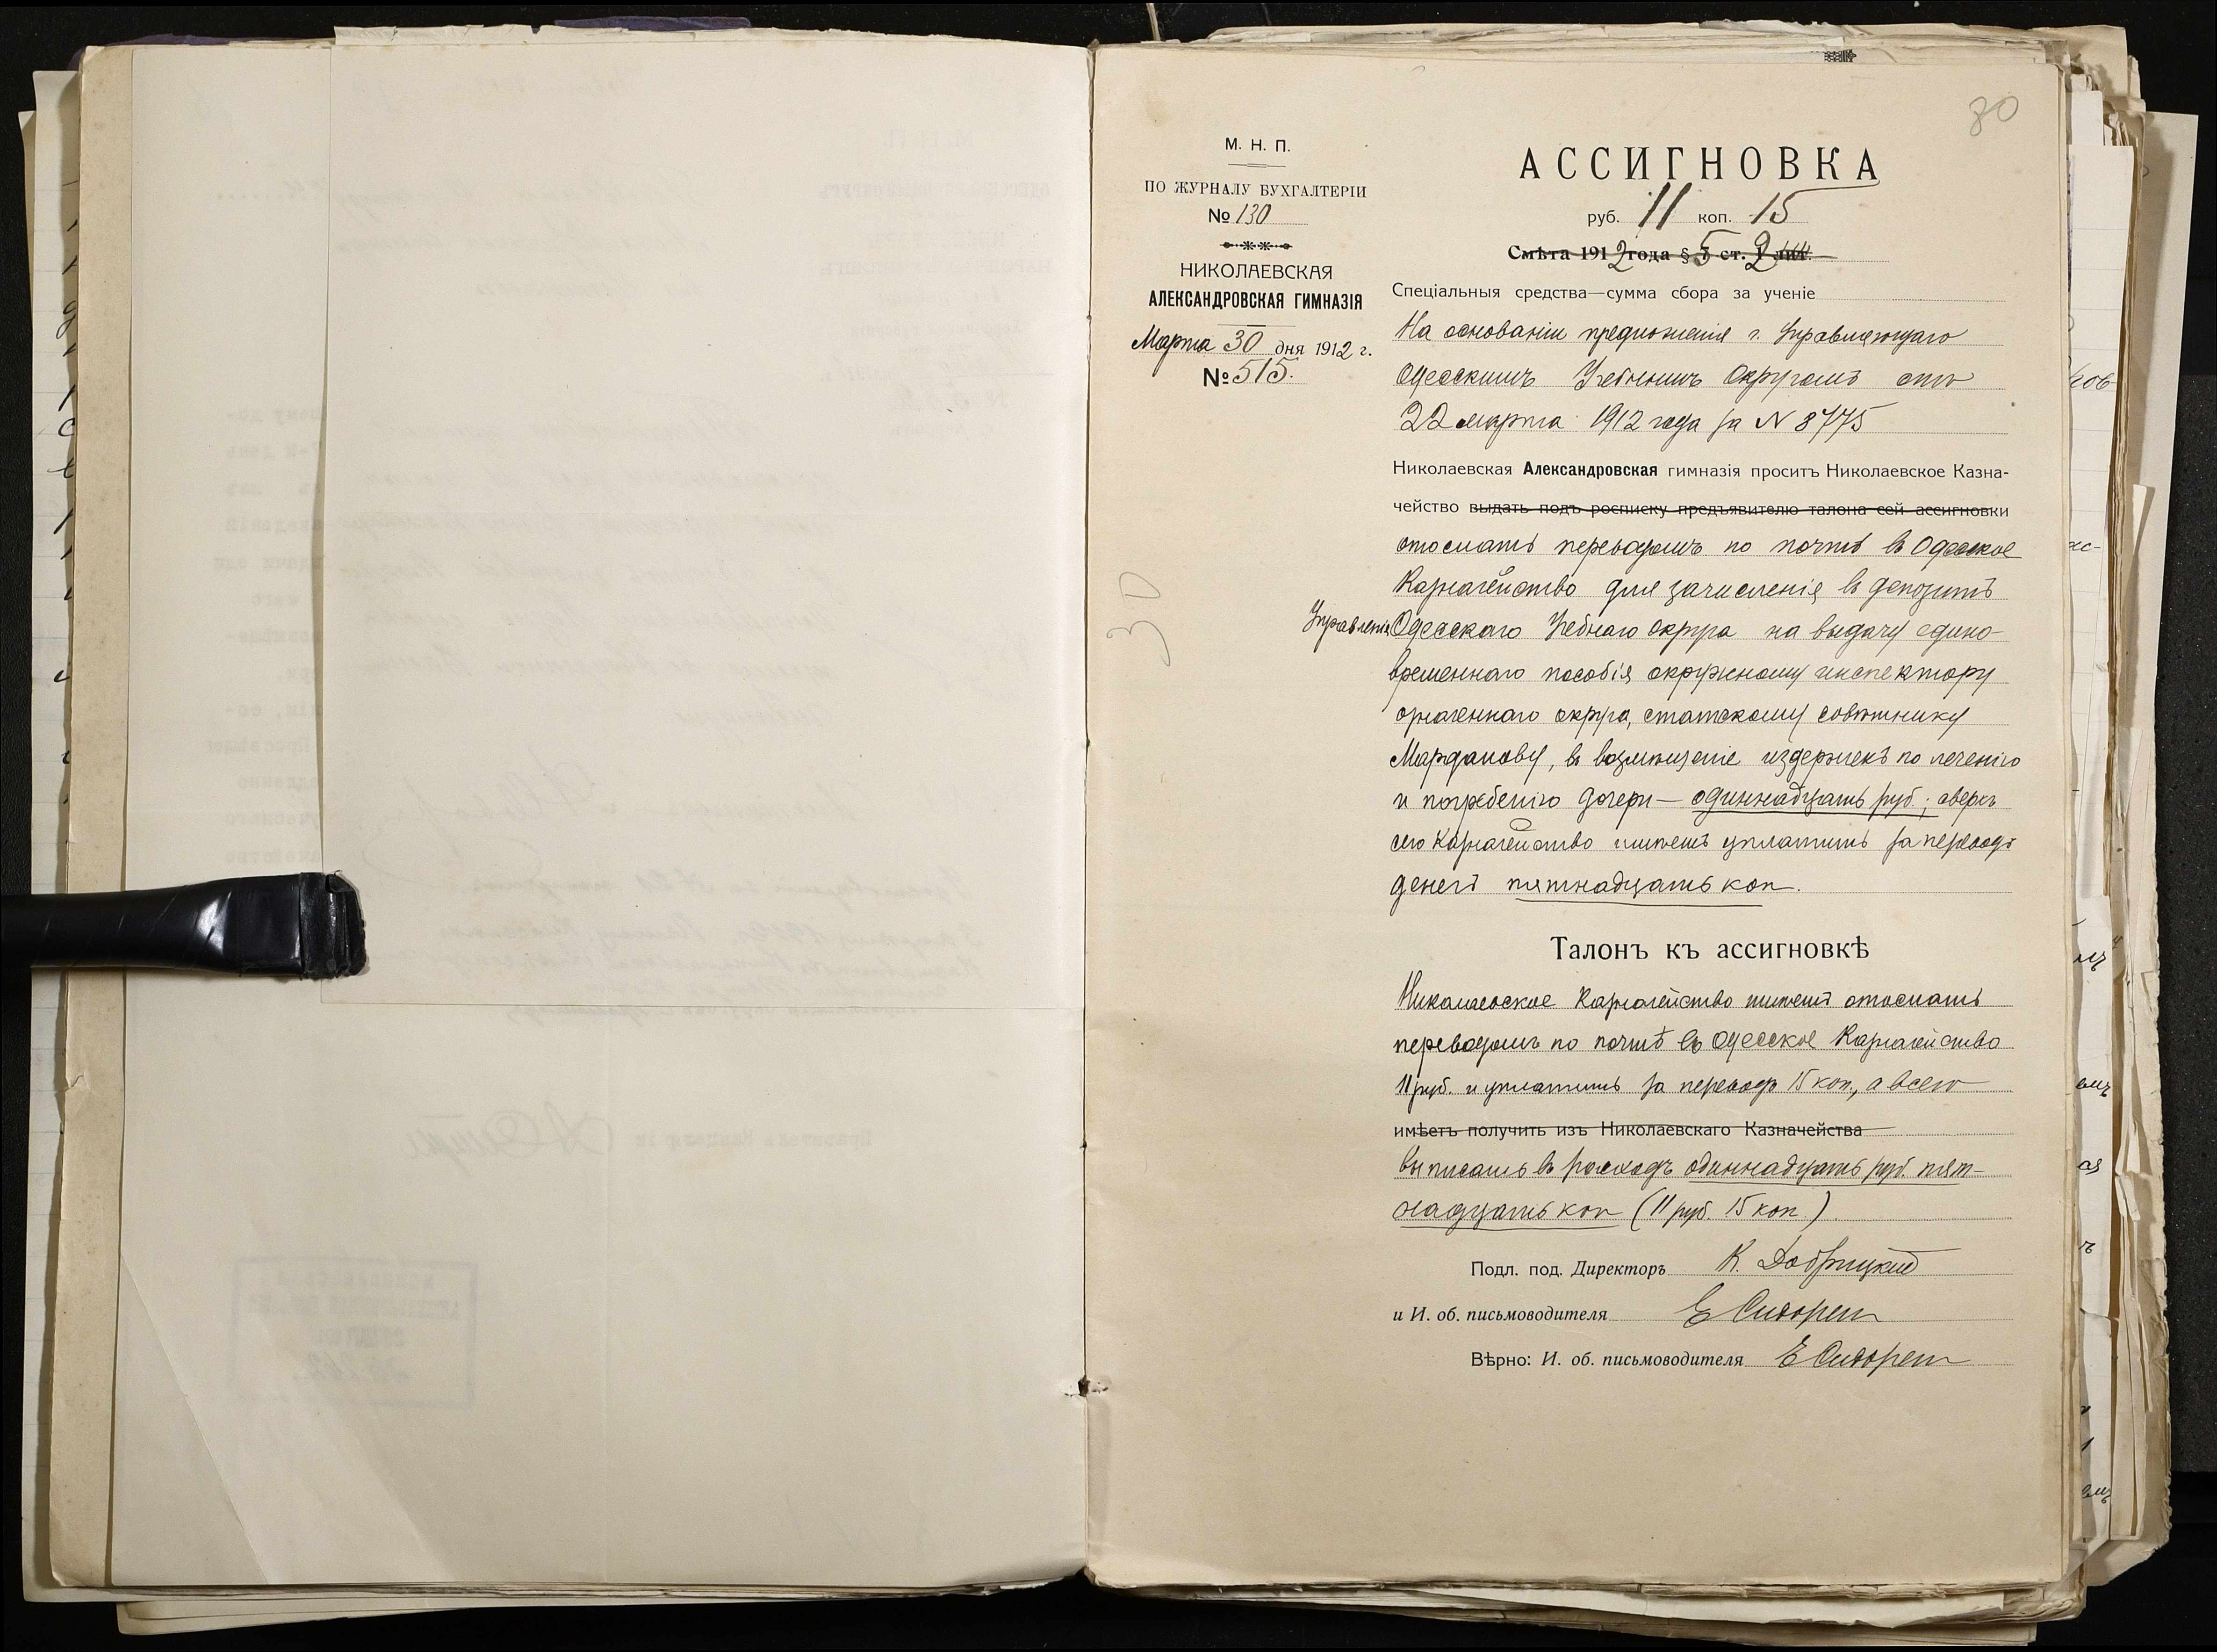 30
М. Н. П.
ПО ЖУРНАЛУ БУХГАЛТЕРІИ
№ 130
НИКОЛАЕВСКАЯ
АЛЕКСАНДРОВСКАЯ ГИМНАЗІЯ
Марта 30 дня 1912 г.
№ 515.
30
АССИГНОВКА
руб. 11 коп. 15
Смѣта 1912 года § 5 ст. 2 лит.
Спеціальныя средства—сумма сбора за ученіе
На основаніи предложенія г. Управляющаго
Одесскимъ Учебнымъ Округомъ отъ
22 марта 1912 года за N 8775
Николаевская Александровская гимназія проситъ Николаевское Казна-
чейство выдать подъ росписку предъявителю талона сей ассигновки
отослать переводомъ по почтѣ въ Одесское
Казначейство для зачисленія въ депозитъ
Управленія Одесскаго Учебнаго округа на выдачу едино-
временнаго пособія окружному инспектору
означеннаго округа, статскому совѣтнику
Марданову, въ возмѣщеніе издержекъ по леченію
и погребенію дочери — одиннадцать руб.; сверхъ
сего Казначейство имѣетъ уплатить за переводъ
денегъ пятнадцать коп.
Талонъ къ ассигновкѣ
Николаевское Казначейство имѣетъ отослать
переводомъ по почтѣ въ Одесское Казначейство
11 руб. и уплатить за переводъ 15 коп., а всего
имѣетъ получить изъ Николаевскаго Казначейства
выписать въ расходъ одиннадцать руб. пят-
надцать коп (11 руб. 15 коп.)
Подл. под. Директоръ К. Добрицкій
и И. об. письмоводителя Е
Вѣрно: И. об. письмоводителя Е